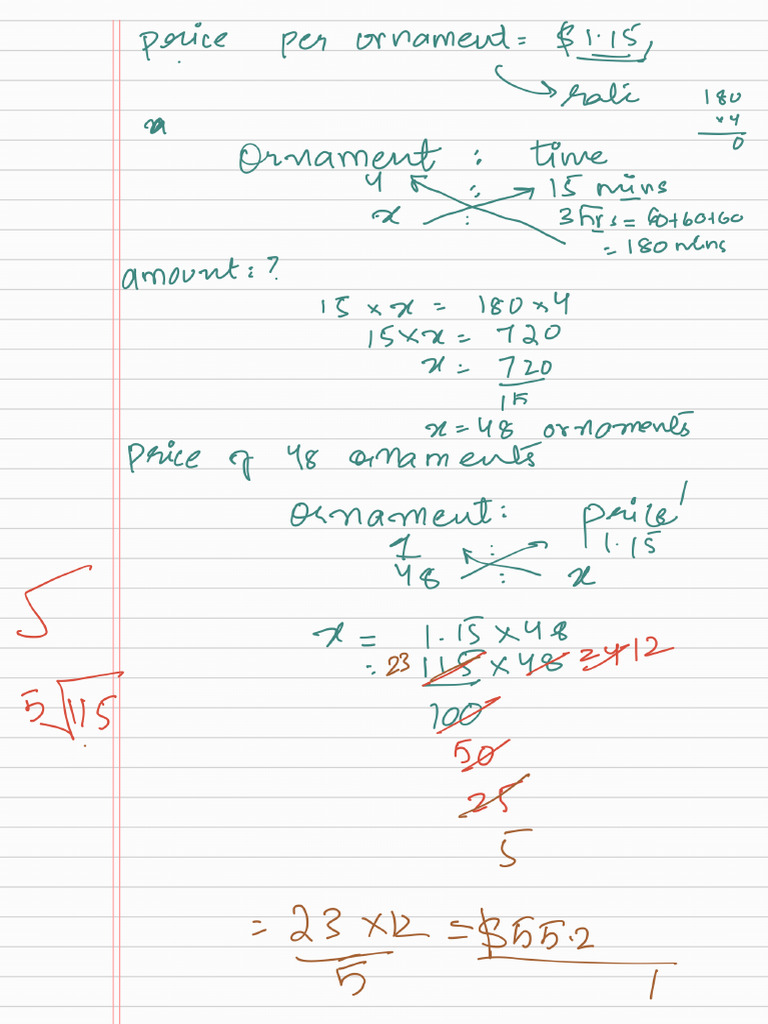 price per ornament = $1.15
ratio
180
×4
0
x
Ornament : time
4 : 15 mins
x : 3 hrs = 60+60+60
= 180 mins
amount: ?
15 × x = 180 × 4
15 × x = 720
x = 720
15
x = 48 ornaments
Price of 48 ornaments
Ornament: price
1 : 1.15
48 : x
x = 1.15 × 48
= 23 115 × 48 24 12
100
50
25
5
5
5√115
= 23 × 12 = $55.2
5